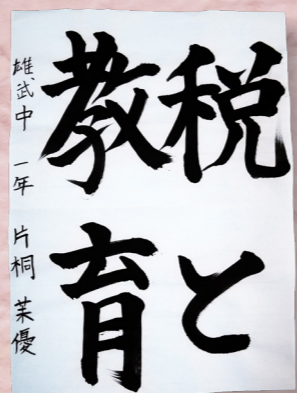 税と
教育
雄武中 一年 片桐 茉優